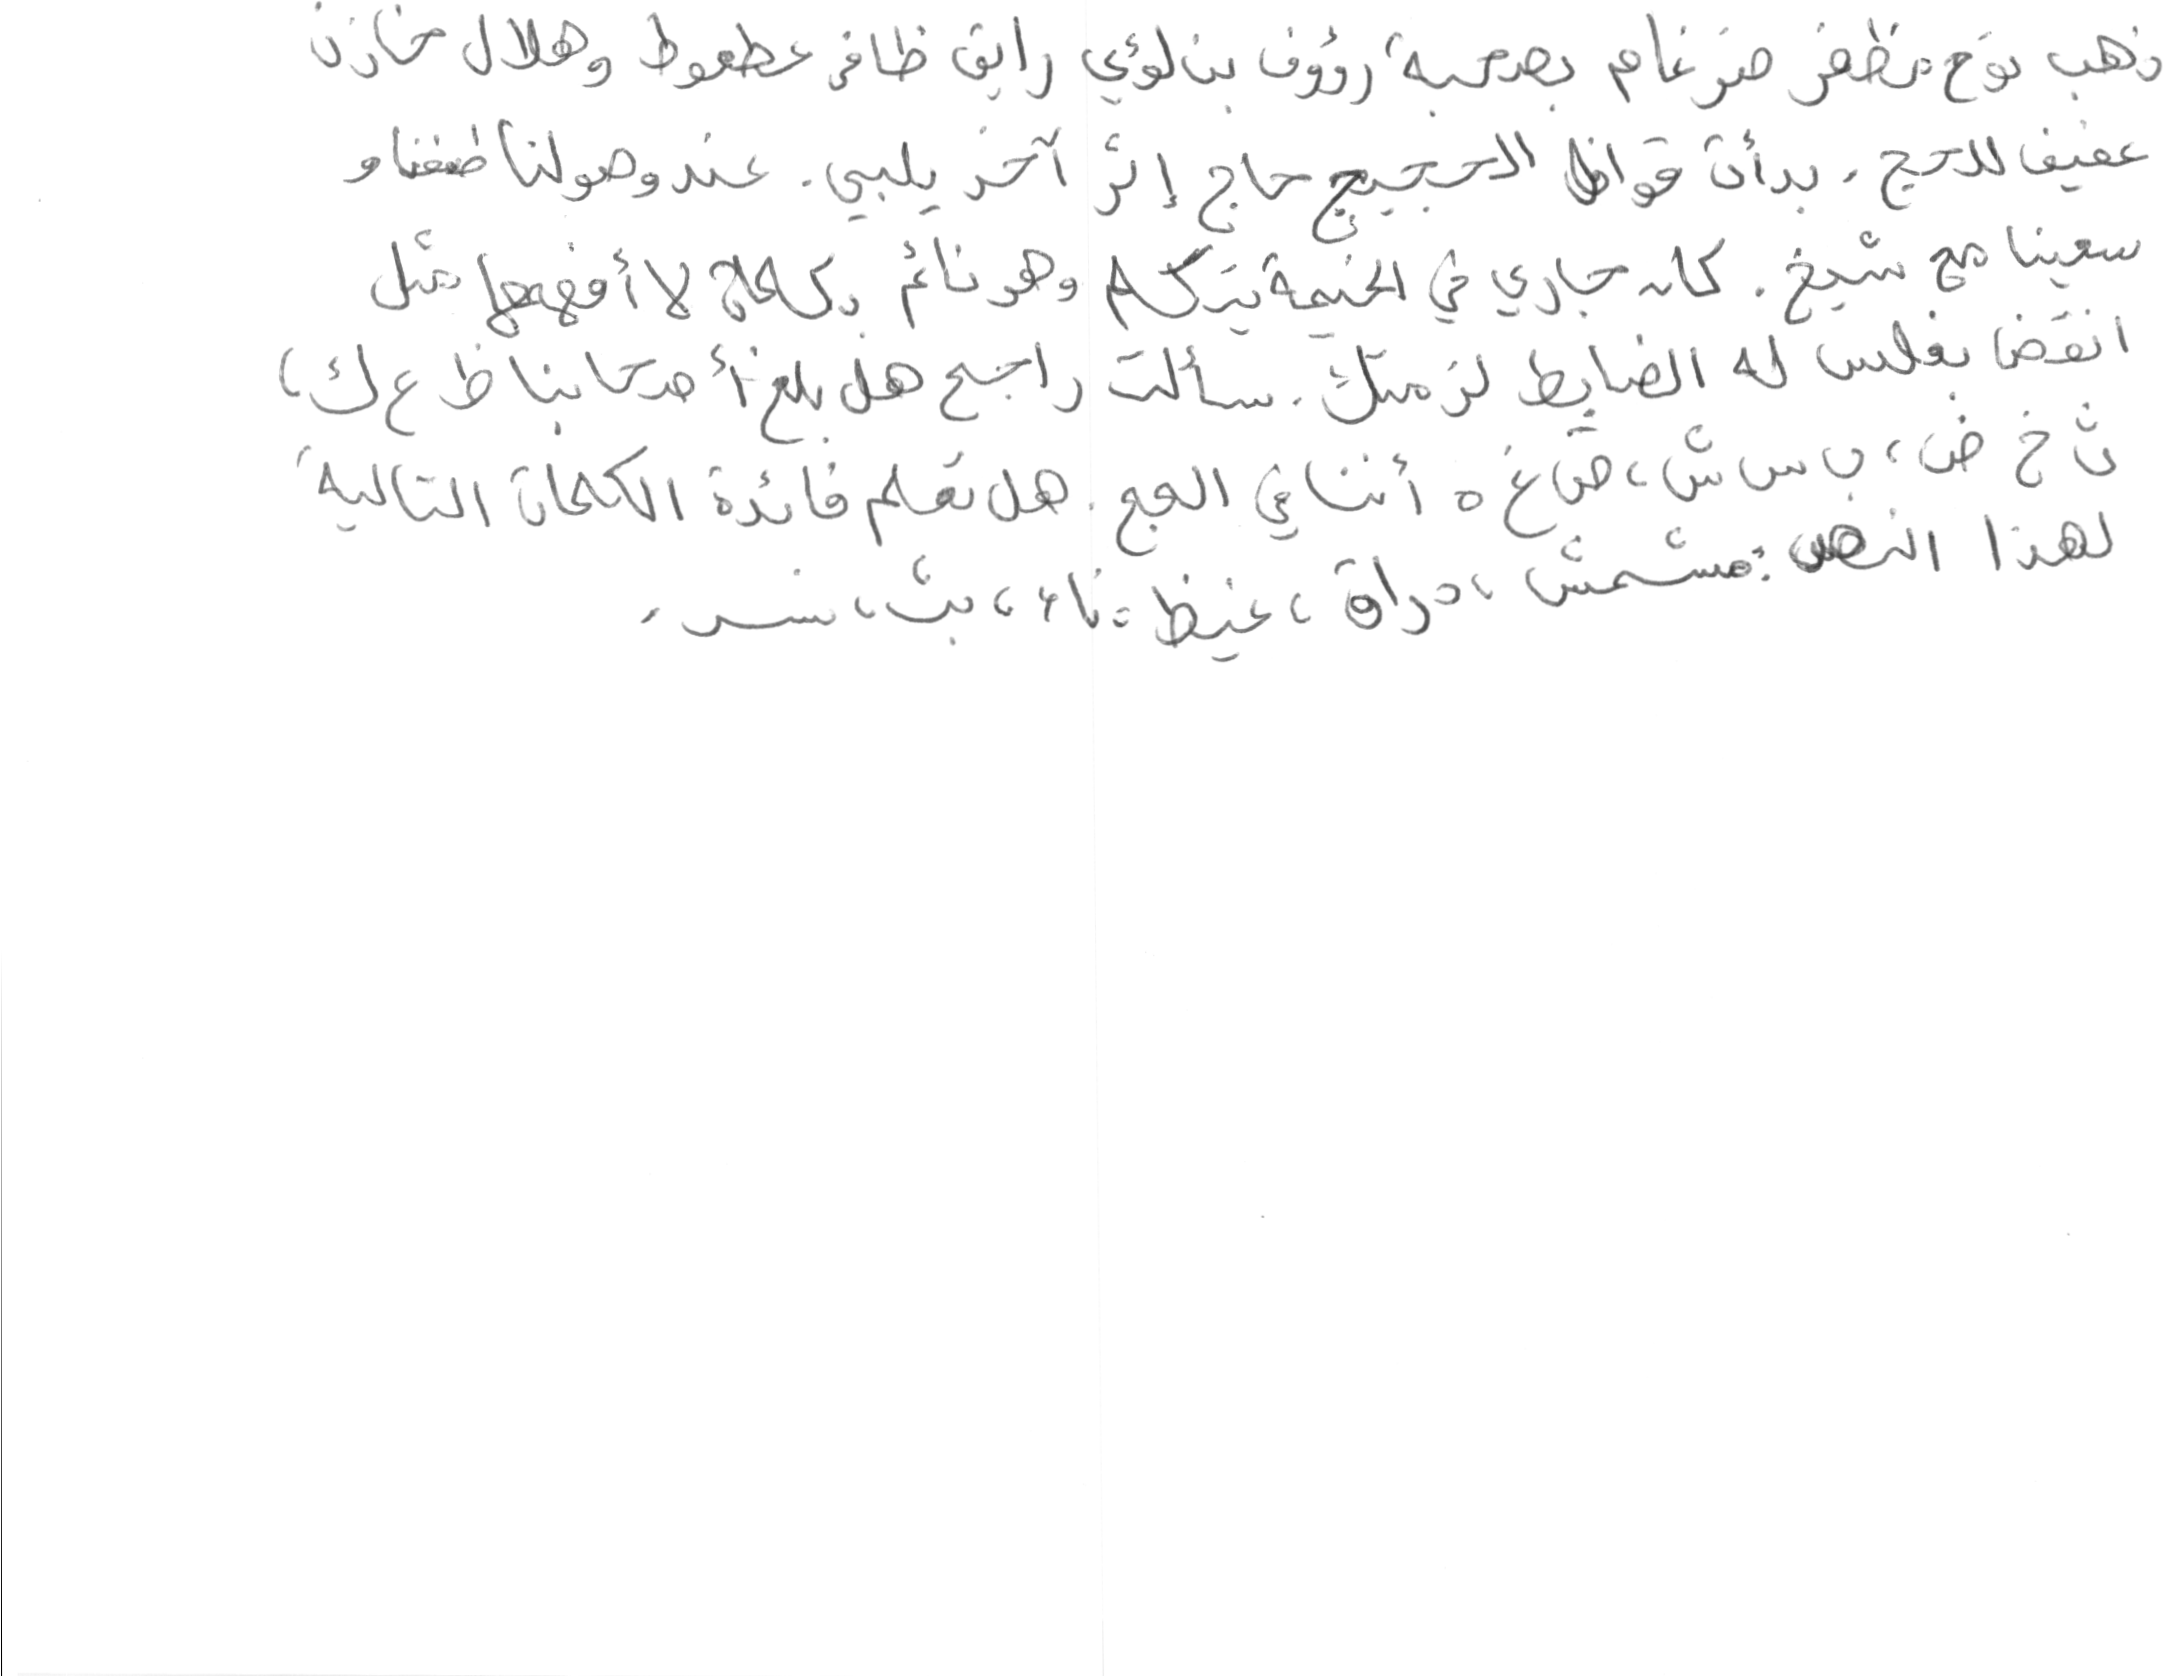 ذهب نوح مظفر ضرغام بصحبة رؤوف بن لؤي رايق ظافر عطعوط وهلال خازن
عفيف للحج. بدأت قوافل الحجيج حاج إثر آخر يلبي. عند وصولنا طفنا و
سعينا مع شيخ. كان جاري في الخيمة يتكلم وهو نائم بكلمات لا أفهمها مثل
انقضا بغلس له الضابط لزمتك. سألت راجح هل بلغ أصحابنا ظ ع ك،
ث خ ض، ب س ش، ص غ ه أثناي الحج. هل تعلم فائدة الكلمات التالية
لهذا النص: مشمش، دراق، غيظ، ناء، بث، سند.